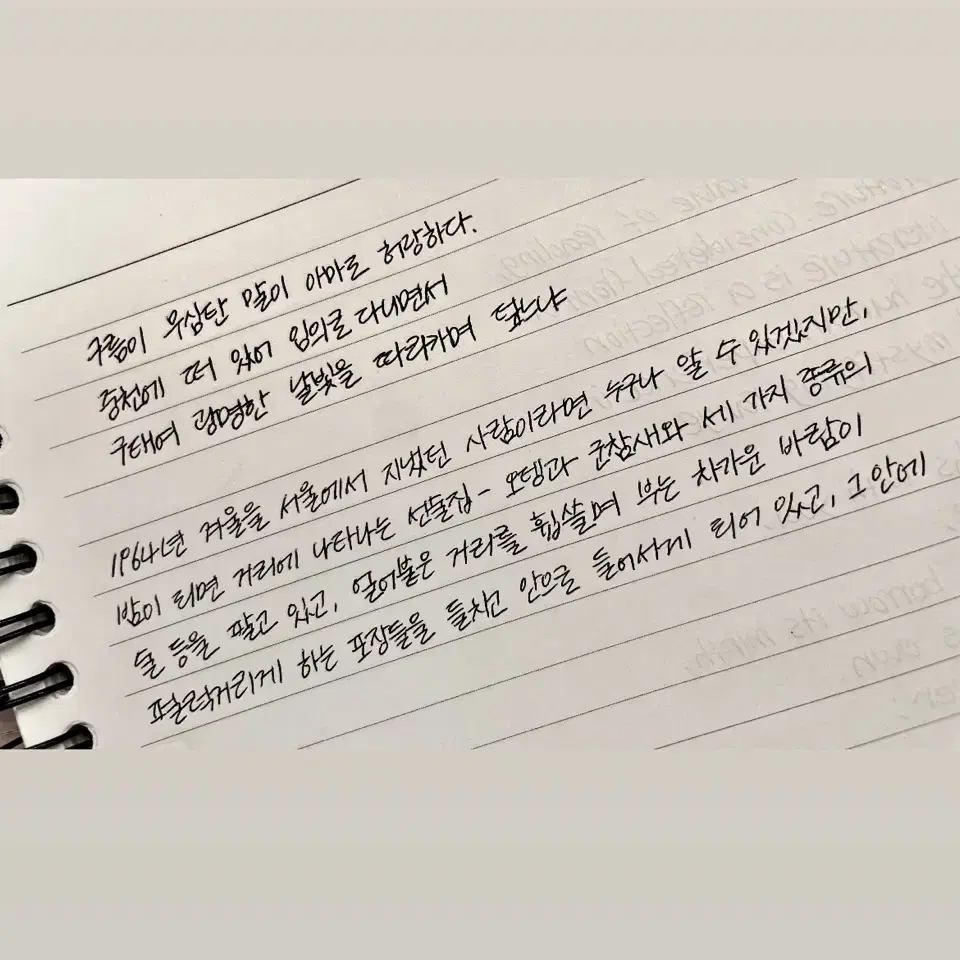 구름이 무심탄 말이 아마로 허랑하다.
중천에 떠 있어 임의로 다니면서
구태여 광명한 날빛을 따라가며 덮느냐
1964년 겨울을 서울에서 지냈던 사람이라면 누구나 알 수 있겠지만,
밤이 되면 거리에 나타나는 선술집- 오뎅과 군참새와 세 가지 종류의
술 등을 팔고 있고, 얼어붙은 거리를 휩쓸며 부는 차가운 바람이
펄럭거리게 하는 포장들을 들치고 안으로 들어서게 되어 있고, 그 안에